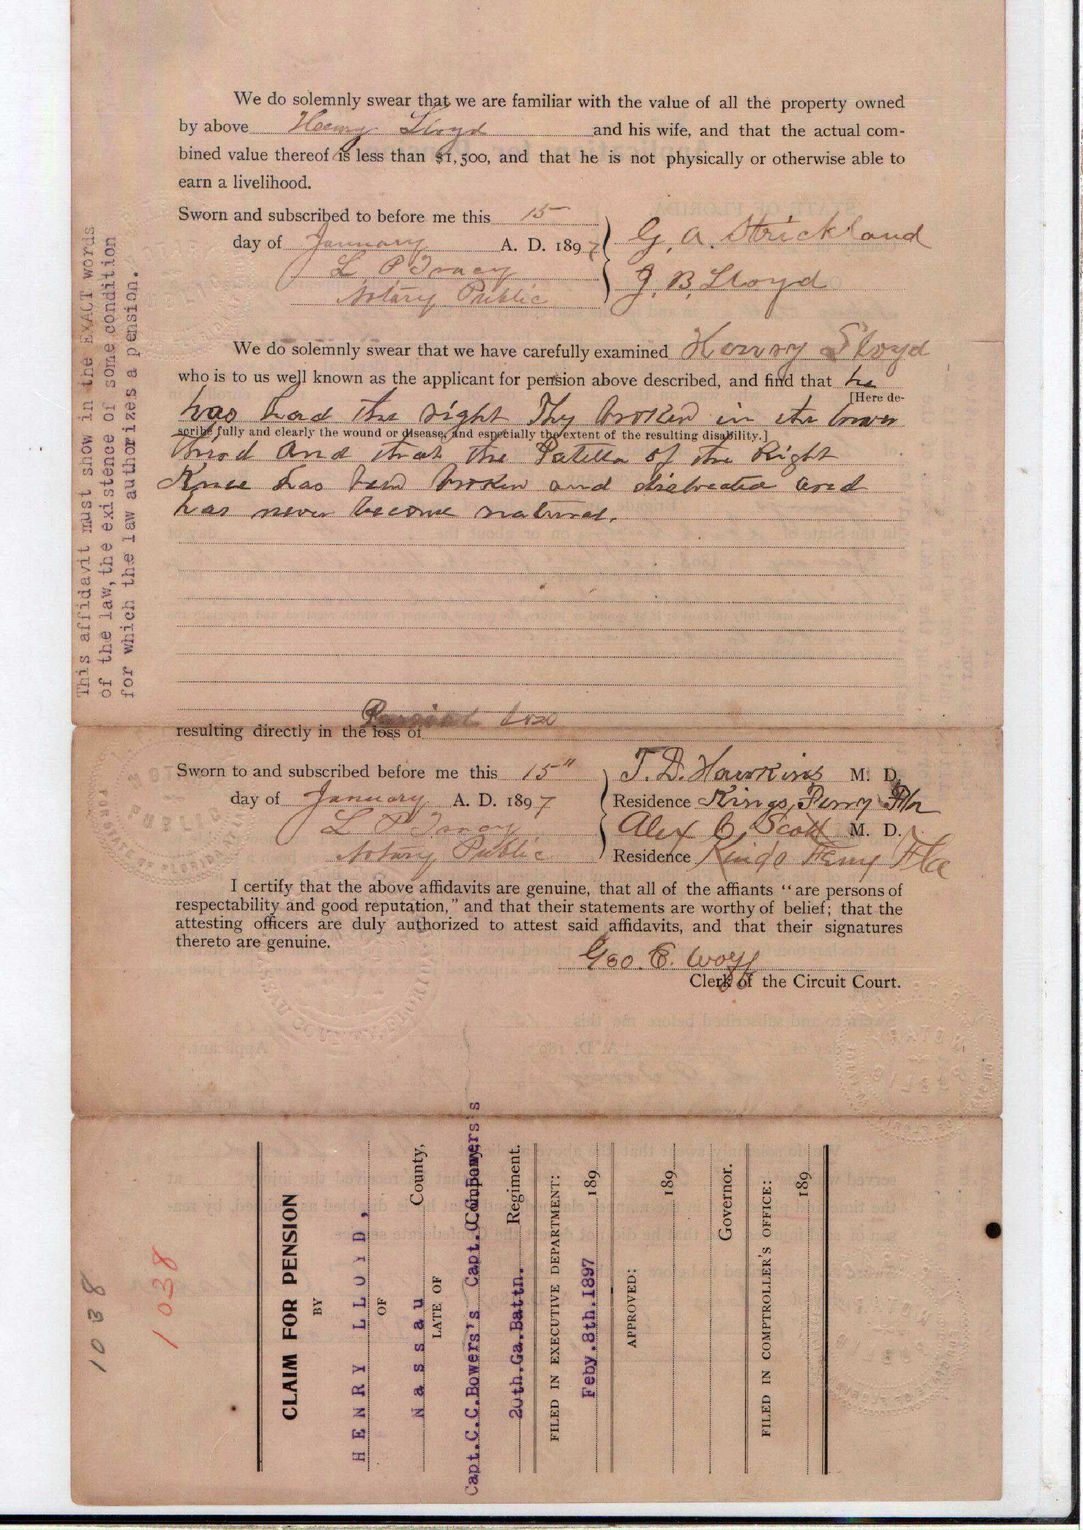 We do solemnly swear that we are familiar with the value of all the property owned
by above Henry Lloyd and his wife, and that the actual com-
bined value thereof is less than $1,500, and that he is not physically or otherwise able to
earn a livelihood.
Sworn and subscribed to before me this 15
day of January A. D. 1897
G. A. Strickland
L P Tracy
J. B. Lloyd
Notary Public
We do solemnly swear that we have carefully examined Henry Lloyd
who is to us well known as the applicant for pension above described, and find that he
[Here de-
has had the right Thy broken in the lower
scribe fully and clearly the wound or disease, and especially the extent of the resulting disability.]
third and that the Patella of the Right
Knee has been broken and and
has never become natural.
resulting directly in the loss of
Sworn to and subscribed before me this 15"
T. D. Hawkins M. D.
day of January A. D. 1897
Residence Kings Ferry Fla
L P Tracy
Alex C. Scott M. D.
Notary Public
Residence Kings Ferry Fla
I certify that the above affidavits are genuine, that all of the affiants "are persons of
respectability and good reputation," and that their statements are worthy of belief; that the
attesting officers are duly authorized to attest said affidavits, and that their signatures
thereto are genuine.
Geo. E. Wolff
Clerk of the Circuit Court.
This affidavit must show in the EXACT words
of the law, the existence of some condition
for which the law authorizes a pension.
1038
1038
CLAIM FOR PENSION
BY
HENRY LLOYD,
OF
Nassau County,
LATE OF
Capt.C.C.Bowers's Company,
20th.Ga.Battn. Regiment.
FILED IN EXECUTIVE DEPARTMENT:
Feby.8th.1897 189
APPROVED:
189
Governor.
FILED IN COMPTROLLER'S OFFICE:
189